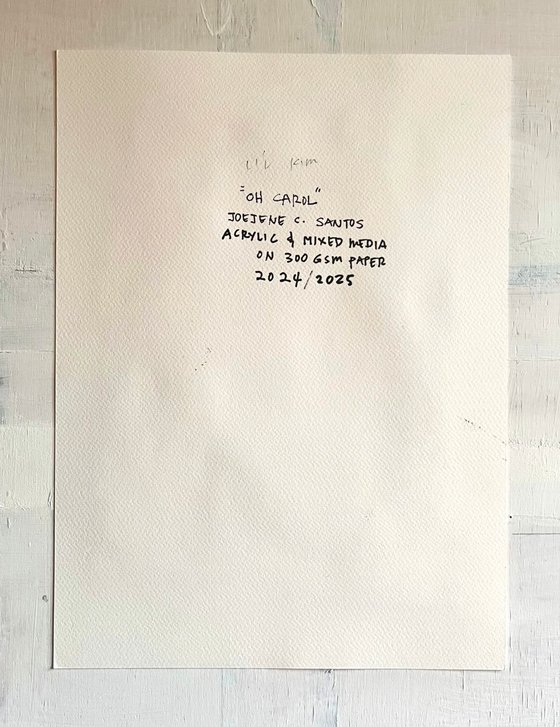 Li'l Kim
"OH CAROL"
JOEJENE C. SANTOS
ACRYLIC & MIXED MEDIA
ON 300 GSM PAPER
2024/2025